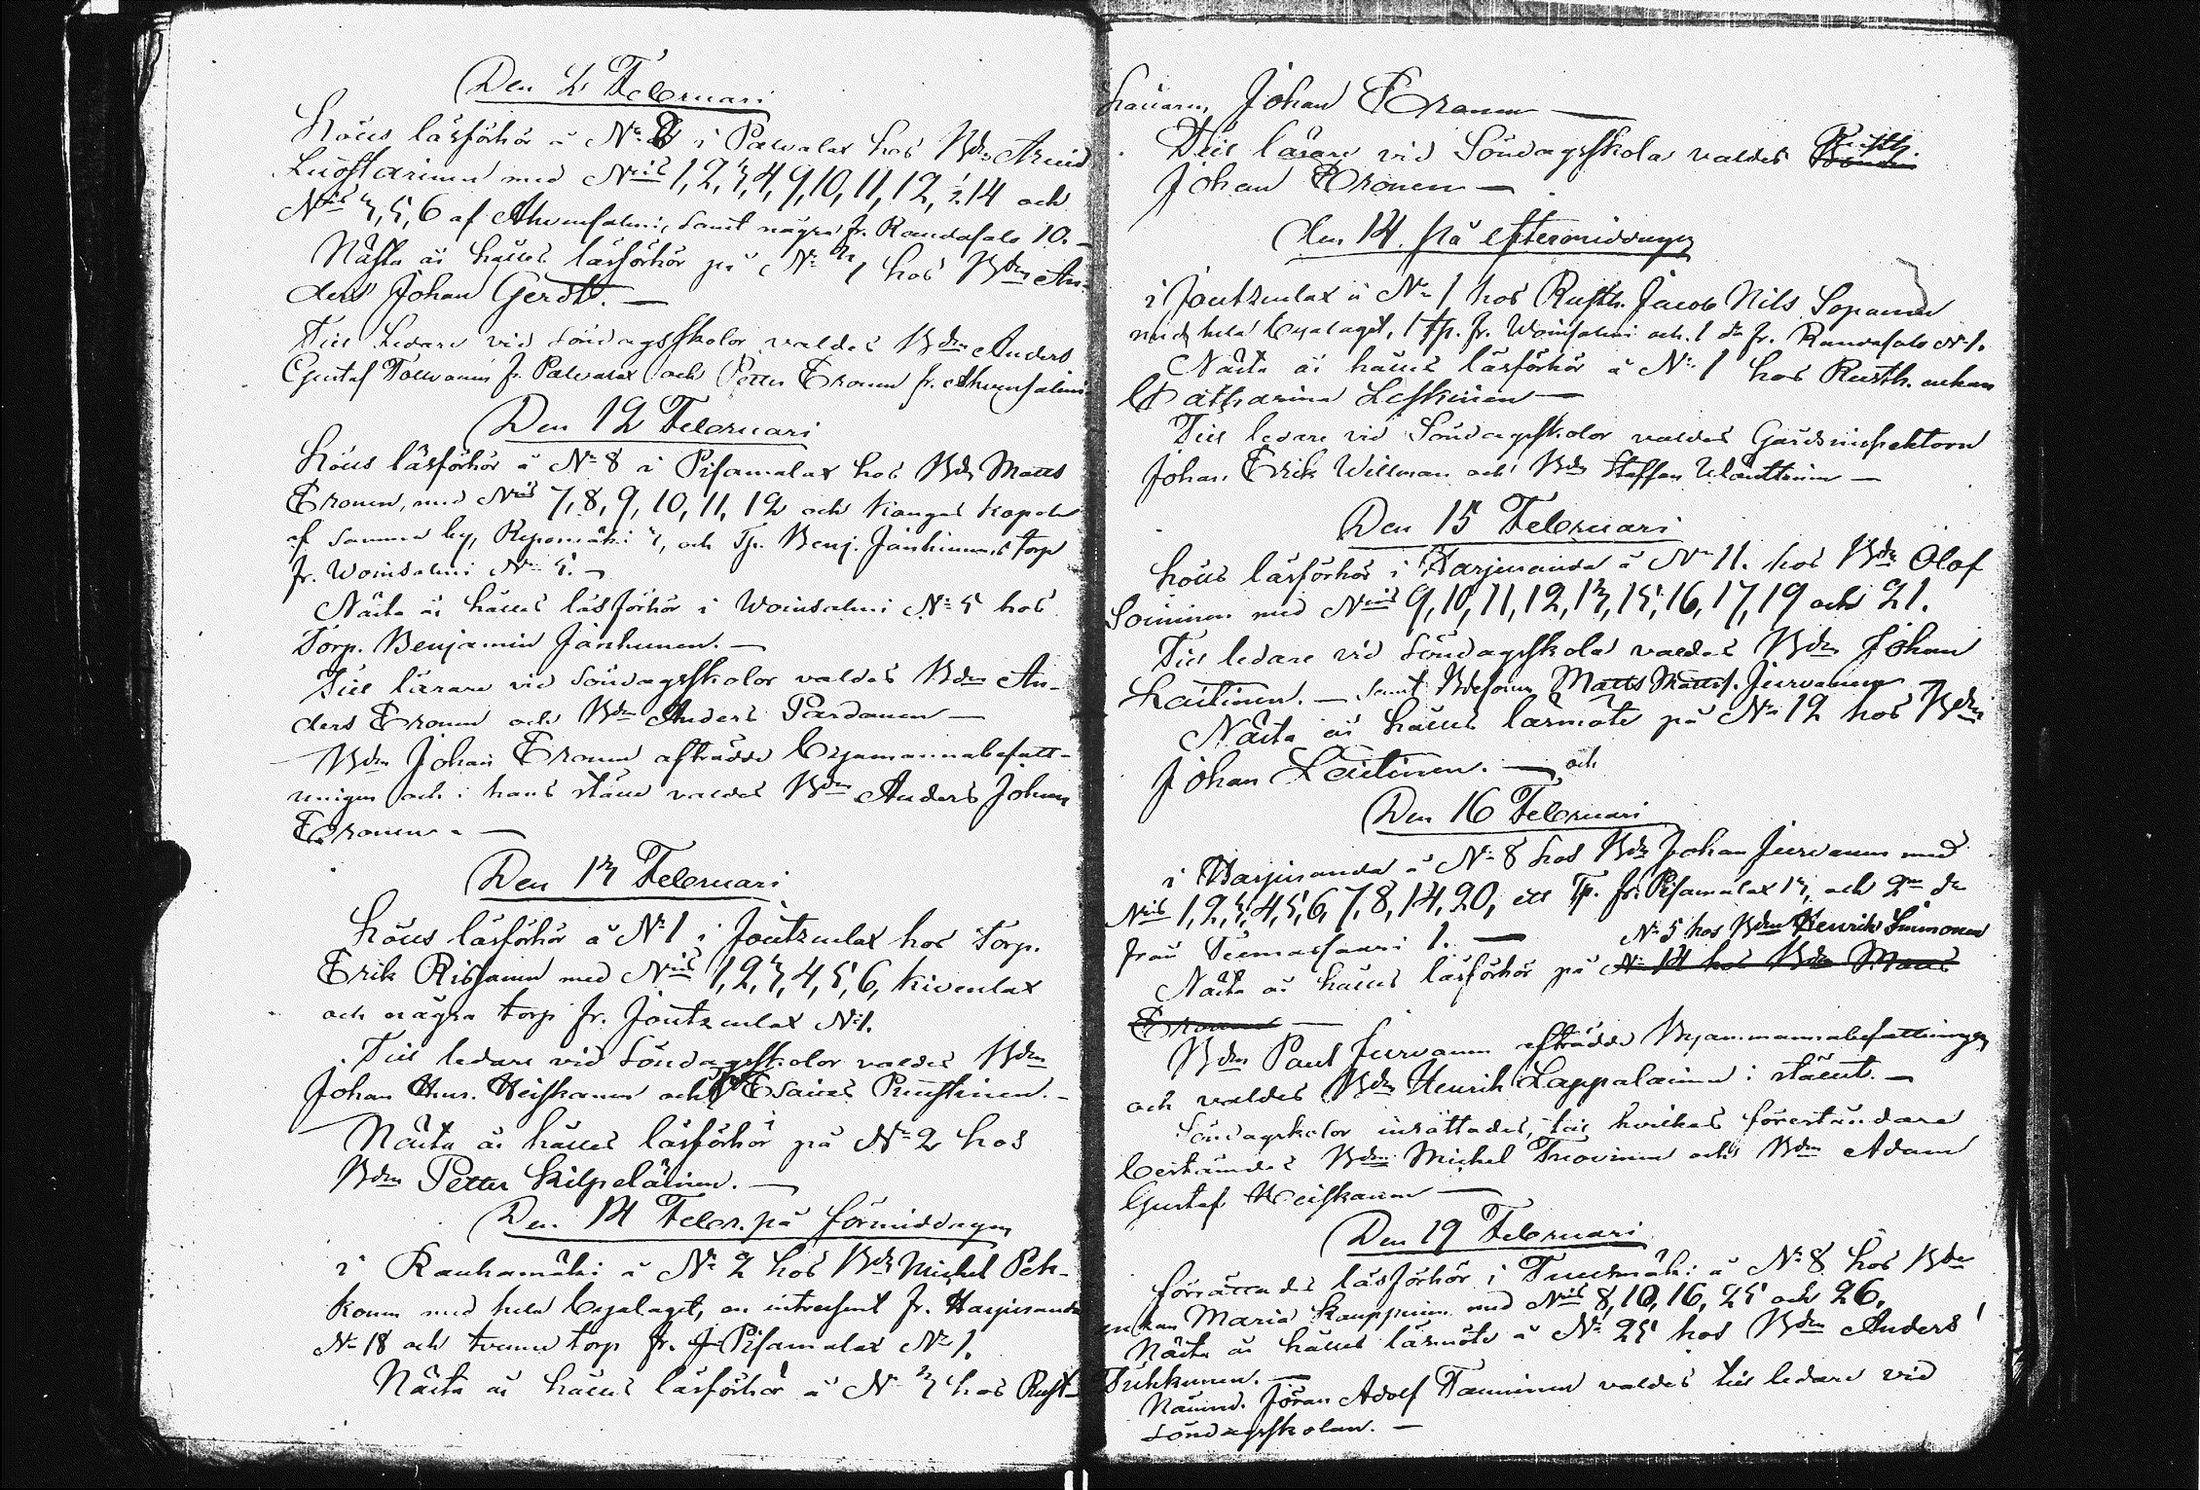 Den 2 Februari
Hölls läsförhör å N° 2 i Pawalax hos Bdn Arvid
Luostarinen med Nris 1, 2, 3, 4, 9, 10, 11, 12, ½ 14 och
Nris 3, 5, 6 af Ahvensalmi, samt några fr. Randasalo 10. —
Nästa år hålles läsförhör på N° 3 hos Bdn An-
ders Johan Gerdt. —
Till Ledare vid söndagsskolor valdes Bdn Anders
Gustaf Tolvanen fr. Pawalax och Petter Eronen fr. Ahvensalmi
Den 12 Februari
Hölls läsförhör å N° 8 i Pisamalax hos Bdn Matts
Eronen, med Nris 7, 8, 9, 10, 11, 12 och Kangas Kapola
af samma by, Repomäki 3, och Tp. Benj. Jänhunens torp
fr. Woinsalmi N° 5. —
Nästa år hålles läsförhör i Woinsalmi N° 5 hos
Torp. Benjamin Jänhunen. —
Till lärare vid söndagsskolor valdes Bdn An-
ders Eronen och Bdn Anders Pardanen —
Bdn Johan Eronen afträdde byamannabefatt-
ningen och i hans ställe valdes Bdn Anders Johan
Eronen. —
Den 13 Februari
Hölls läsförhör å N° 1 i Joutzenlax hos Torp.
Erik Rissanen med Nris 1, 2, 3, 4, 5, 6, Kivenlax
och några torp fr. Joutzenlax N° 1.
Till ledare vid söndagsskolor valdes Bdn
Johan Heiskanen och Esaias Puustinen. —
Nästa år hålles läsförhör på N° 2 hos
Bdn Petter Kilpeläinen. —
Den 14 Febr. på förmiddagen
i Rauhamäki å N° 2 hos Bdn Michel Pek-
konen med hela byalaget, en intressent fr. Harjuranda
N° 18 och tvenne torp fr. Pisamalax N° 1.
Nästa år hålles läsförhör å N° 3 hos Rust-
hållaren, Johan Eronen —
Till lärare vid Söndagsskola valdes Rusth. Bonden
Johan Eronen —
den 14. på eftermiddagen
i Joutzenlax å N° 1 hos Rusth. Jacob Nils Sopanen
med hela byalaget, 1 Tp. fr. Woinsalmi och 1 do fr. Randasalo N° 1.
Nästa år hålles läsförhör å N° 1 hos Rusth. enkan
Catharina Leskinen —
Till ledare vid Söndagsskolor valdes Gårdsinspektorn
Johan Erik Willman och Bdn Staffan
Den 15 Februari
hölls läsförhör i Harjuranda å N° 11. hos Bdn Olof
Soininen med Nris 9, 10, 11, 12, 13, 15, 16, 17, 19 och 21.
Till ledare vid söndagsskola valdes Bdn Johan
Laitinen. — samt Bdesonen Matts Mattss. Jurvanen —
Nästa år hålles läsmöte på N° 12 hos Bdn
Johan Laitinen. — och
Den 16 Februari
i Harjuranda å N° 8 hos Bdn Johan Jurvanen med
Nris 1, 2, 3, 4, 5, 6, 7, 8, 14, 20, ett Tp. fr. Pisamalax 13, och 2ne do
från Teemassaari 1. — N° 5 hos Bdn Henrik Simonen
Nästa år hålles läsförhör på N° 14 hos Bdn Matts
Eronen —
Bdn Paul Jurvanen afträdde Byammannabefattningen
och valdes Bdn Henrik Lappalainen i stället. —
Söndagskolor inrättades, till hvilkas föreståndare
bestämdes Bdn Michel Truovinen och Bdn Adam
Gustaf Heiskanen —
Den 19 Februari
förrättades läsförhör i Tuusmäki å N° 8 hos Bde
enkan Maria Kauppinen med Nris 8, 10, 16, 25 och 26.
Nästa år hålles läsmöte å N° 25 hos Bdn Anders
Tuhkunen. —
Nämnd. Jöran Adolf Tanninen valdes till ledare vid
söndagsskolan. —